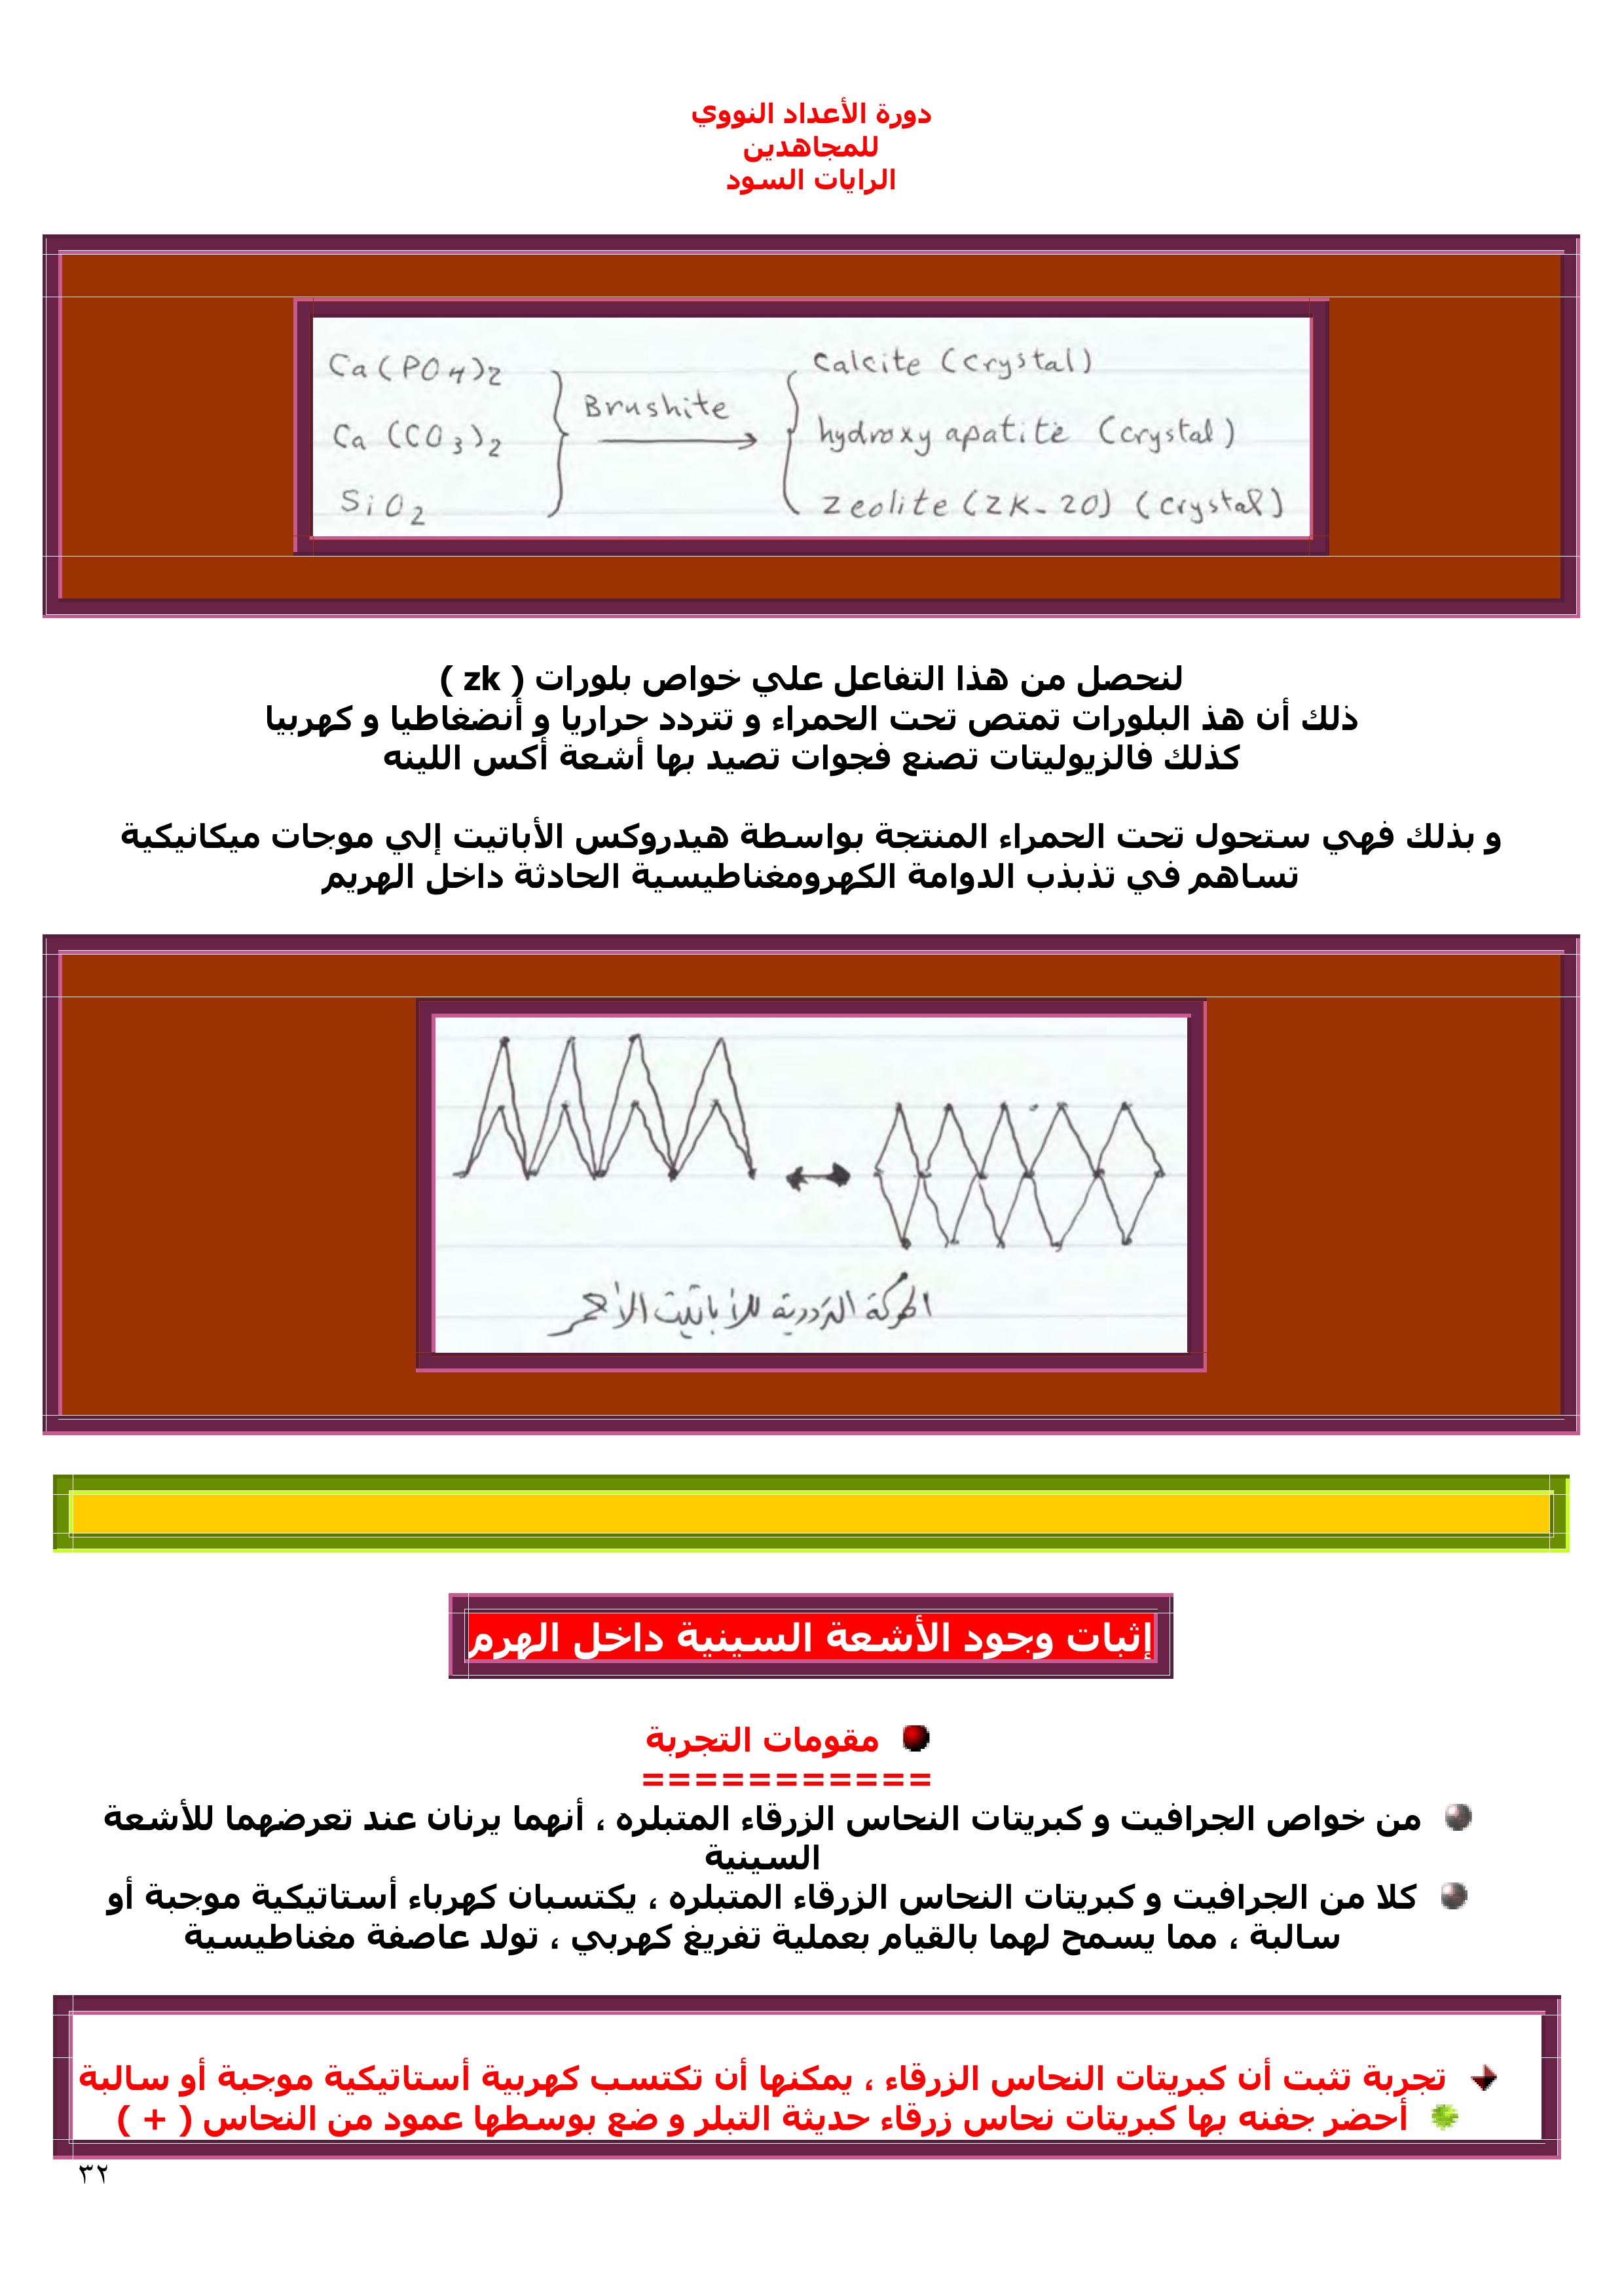 دورة الأعداد النووي
للمجاهدين
الرايات السود
Ca(PO4)2
Ca (CO3)2
SiO2
Brushite
Calcite (crystal)
hydroxy apatite (crystal)
Zeolite (ZK-20) (crystal)
لنحصل من هذا التفاعل علي خواص بلورات ( zk )
ذلك أن هذ البلورات تمتص تحت الحمراء و تتردد حراريا و أنضغاطيا و كهربيا
كذلك فالزيوليتات تصنع فجوات تصيد بها أشعة أكس اللينه
و بذلك فهي ستحول تحت الحمراء المنتجة بواسطة هيدروكس الأباتيت إلي موجات ميكانيكية
تساهم في تذبذب الدوامة الكهرومغناطيسية الحادثة داخل الهريم
الحركة الترددية للأباتيت الأحمر
إثبات وجود الأشعة السينية داخل الهرم
مقومات التجربة
===========
من خواص الجرافيت و كبريتات النحاس الزرقاء المتبلره ، أنهما يرنان عند تعرضهما للأشعة
السينية
كلا من الجرافيت و كبريتات النحاس الزرقاء المتبلره ، يكتسبان كهرباء أستاتيكية موجبة أو
سالبة ، مما يسمح لهما بالقيام بعملية تفريغ كهربي ، تولد عاصفة مغناطيسية
تجربة تثبت أن كبريتات النحاس الزرقاء ، يمكنها أن تكتسب كهربية أستاتيكية موجبة أو سالبة
أحضر جفنه بها كبريتات نحاس زرقاء حديثة التبلر و ضع بوسطها عمود من النحاس ( + )
٣٢